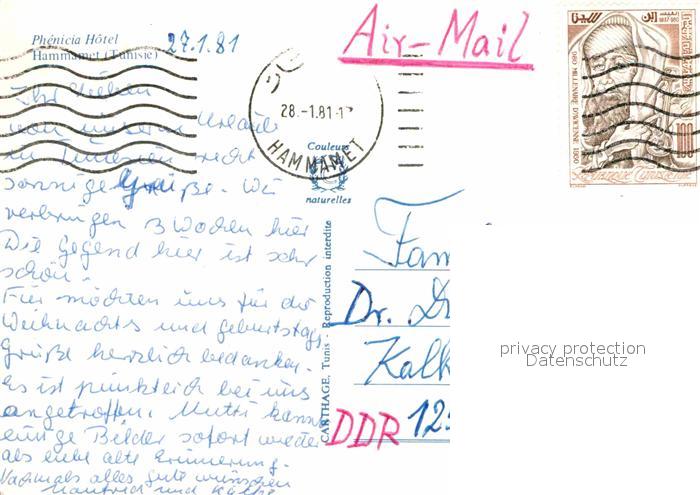 Phénicia Hôtel
Hammamet (Tunisie)
27.1.81
Air-Mail
28.-1.81-1
HAMMAMET
ابن سينا
980 MILLENAIRE D'AVICENNE 1980
République Tunisienne
Couleurs
naturelles
CARTHAGE, Tunis - Reproduction interdite
Ihr Lieben
von unserem Urlaub
in Tunesien recht
sonnige Grüße. Wir
verbringen 3 Wochen hier
Die Gegend hier ist sehr
schön.
Hier möchten uns für die
Weihnachts und geburtstags
Grüße herzlich bedanken.
Es ist pünktlich bei uns
angetroffen. Mutti kannte
einige Bilder sofort wieder
als liebe alte Erinnerung.
Nochmals alles gute wünschen
Manfred und Käthe
Fam
Dr. D
Kalk
DDR 12
privacy protection
Datenschutz